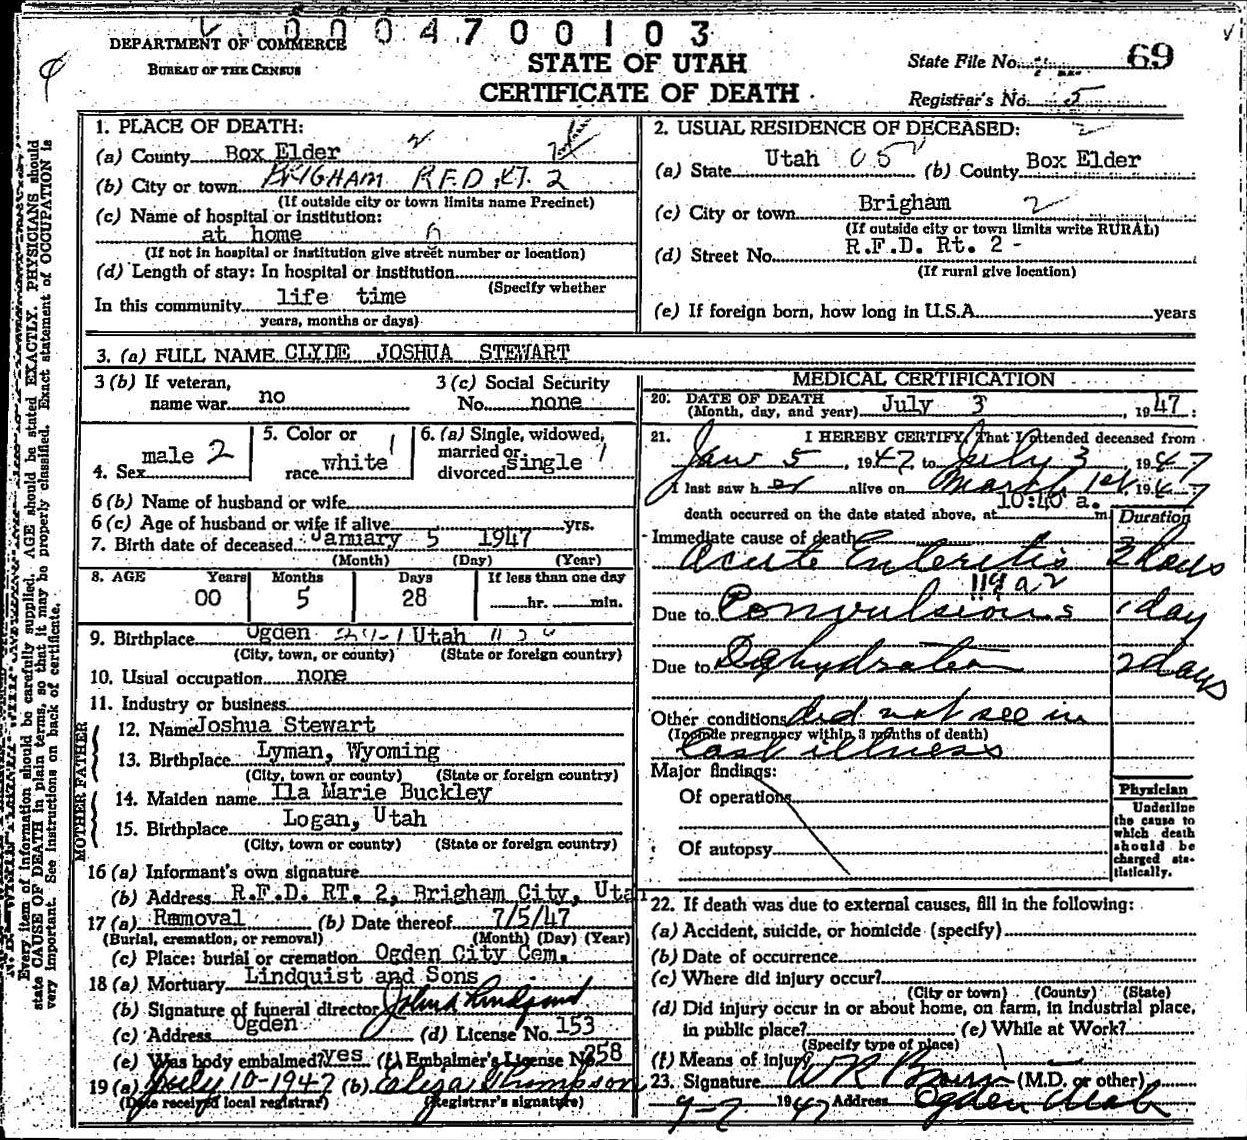 0004700103
DEPARTMENT OF COMMERCE
BUREAU OF THE CENSUS
STATE OF UTAH
CERTIFICATE OF DEATH
State File No. 69
Registrar's No. 5
1. PLACE OF DEATH:
(a) County Box Elder
(b) City or town BRIGHAM R.F.D. RT. 2
(If outside city or town limits name Precinct)
(c) Name of hospital or institution:
at home
(If not in hospital or institution give street number or location)
(d) Length of stay: In hospital or institution
(Specify whether
In this community life time
years, months or days)
2. USUAL RESIDENCE OF DECEASED:
(a) State Utah (b) County Box Elder
(c) City or town Brigham
(If outside city or town limits write RURAL)
(d) Street No. R.F.D. Rt. 2 -
(If rural give location)
(e) If foreign born, how long in U.S.A. years
3. (a) FULL NAME CLYDE JOSHUA STEWART
3 (b) If veteran, name war no
3 (c) Social Security No. none
4. Sex male 2
5. Color or race white 1
6. (a) Single, widowed, married or divorced single 1
6 (b) Name of husband or wife
6 (c) Age of husband or wife if alive yrs.
7. Birth date of deceased January 5 1947
(Month) (Day) (Year)
8. AGE Years Months Days If less than one day
00 5 28 hr. min.
9. Birthplace Ogden Utah
(City, town, or county) (State or foreign country)
10. Usual occupation none
11. Industry or business
FATHER
12. Name Joshua Stewart
13. Birthplace Lyman, Wyoming
(City, town or county) (State or foreign country)
MOTHER
14. Maiden name Ila Marie Buckley
15. Birthplace Logan, Utah
(City, town or county) (State or foreign country)
16 (a) Informant's own signature
(b) Address R.F.D. RT. 2, Brigham City, Utah
17 (a) Removal (b) Date thereof 7/5/47
(Burial, cremation, or removal) (Month) (Day) (Year)
(c) Place: burial or cremation Ogden City Cem.
18 (a) Mortuary Lindquist and Sons
(b) Signature of funeral director John Lindquist
(c) Address Ogden (d) License No. 153
(e) Was body embalmed? yes (f) Embalmer's License No 258
19 (a) July 10-1947 (b) Eliza Thompson
(Date received local registrar) (Registrar's signature)
MEDICAL CERTIFICATION
20. DATE OF DEATH
(Month, day, and year) July 3, 1947
21. I HEREBY CERTIFY, That I attended deceased from
Jan 5, 1947 to July 3 1947
I last saw h alive on March 1st, 1947
death occurred on the date stated above, at 10:40 a. m
Duration
Immediate cause of death
Acute Enteritis 3 days
119 a 2
Due to Convulsions 1 day
Due to Dehydration 2 days
Other conditions did not see in
(Include pregnancy within 3 months of death)
last illness
Major findings:
Of operations
Of autopsy
Physician
Underline the cause to which death should be charged statistically.
22. If death was due to external causes, fill in the following:
(a) Accident, suicide, or homicide (specify)
(b) Date of occurrence
(c) Where did injury occur?
(City or town) (County) (State)
(d) Did injury occur in or about home, on farm, in industrial place,
in public place? (e) While at Work?
(Specify type of place)
(f) Means of injury
23. Signature W R (M.D. or other)
1947 Address Ogden Utah
Every item of information should be carefully supplied. AGE should be stated EXACTLY. PHYSICIANS should
state CAUSE OF DEATH in plain terms, so that it may be properly classified. Exact statement of OCCUPATION is
very important. See instructions on back of certificate.